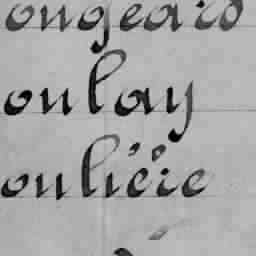 ongeard
onlay
onlière